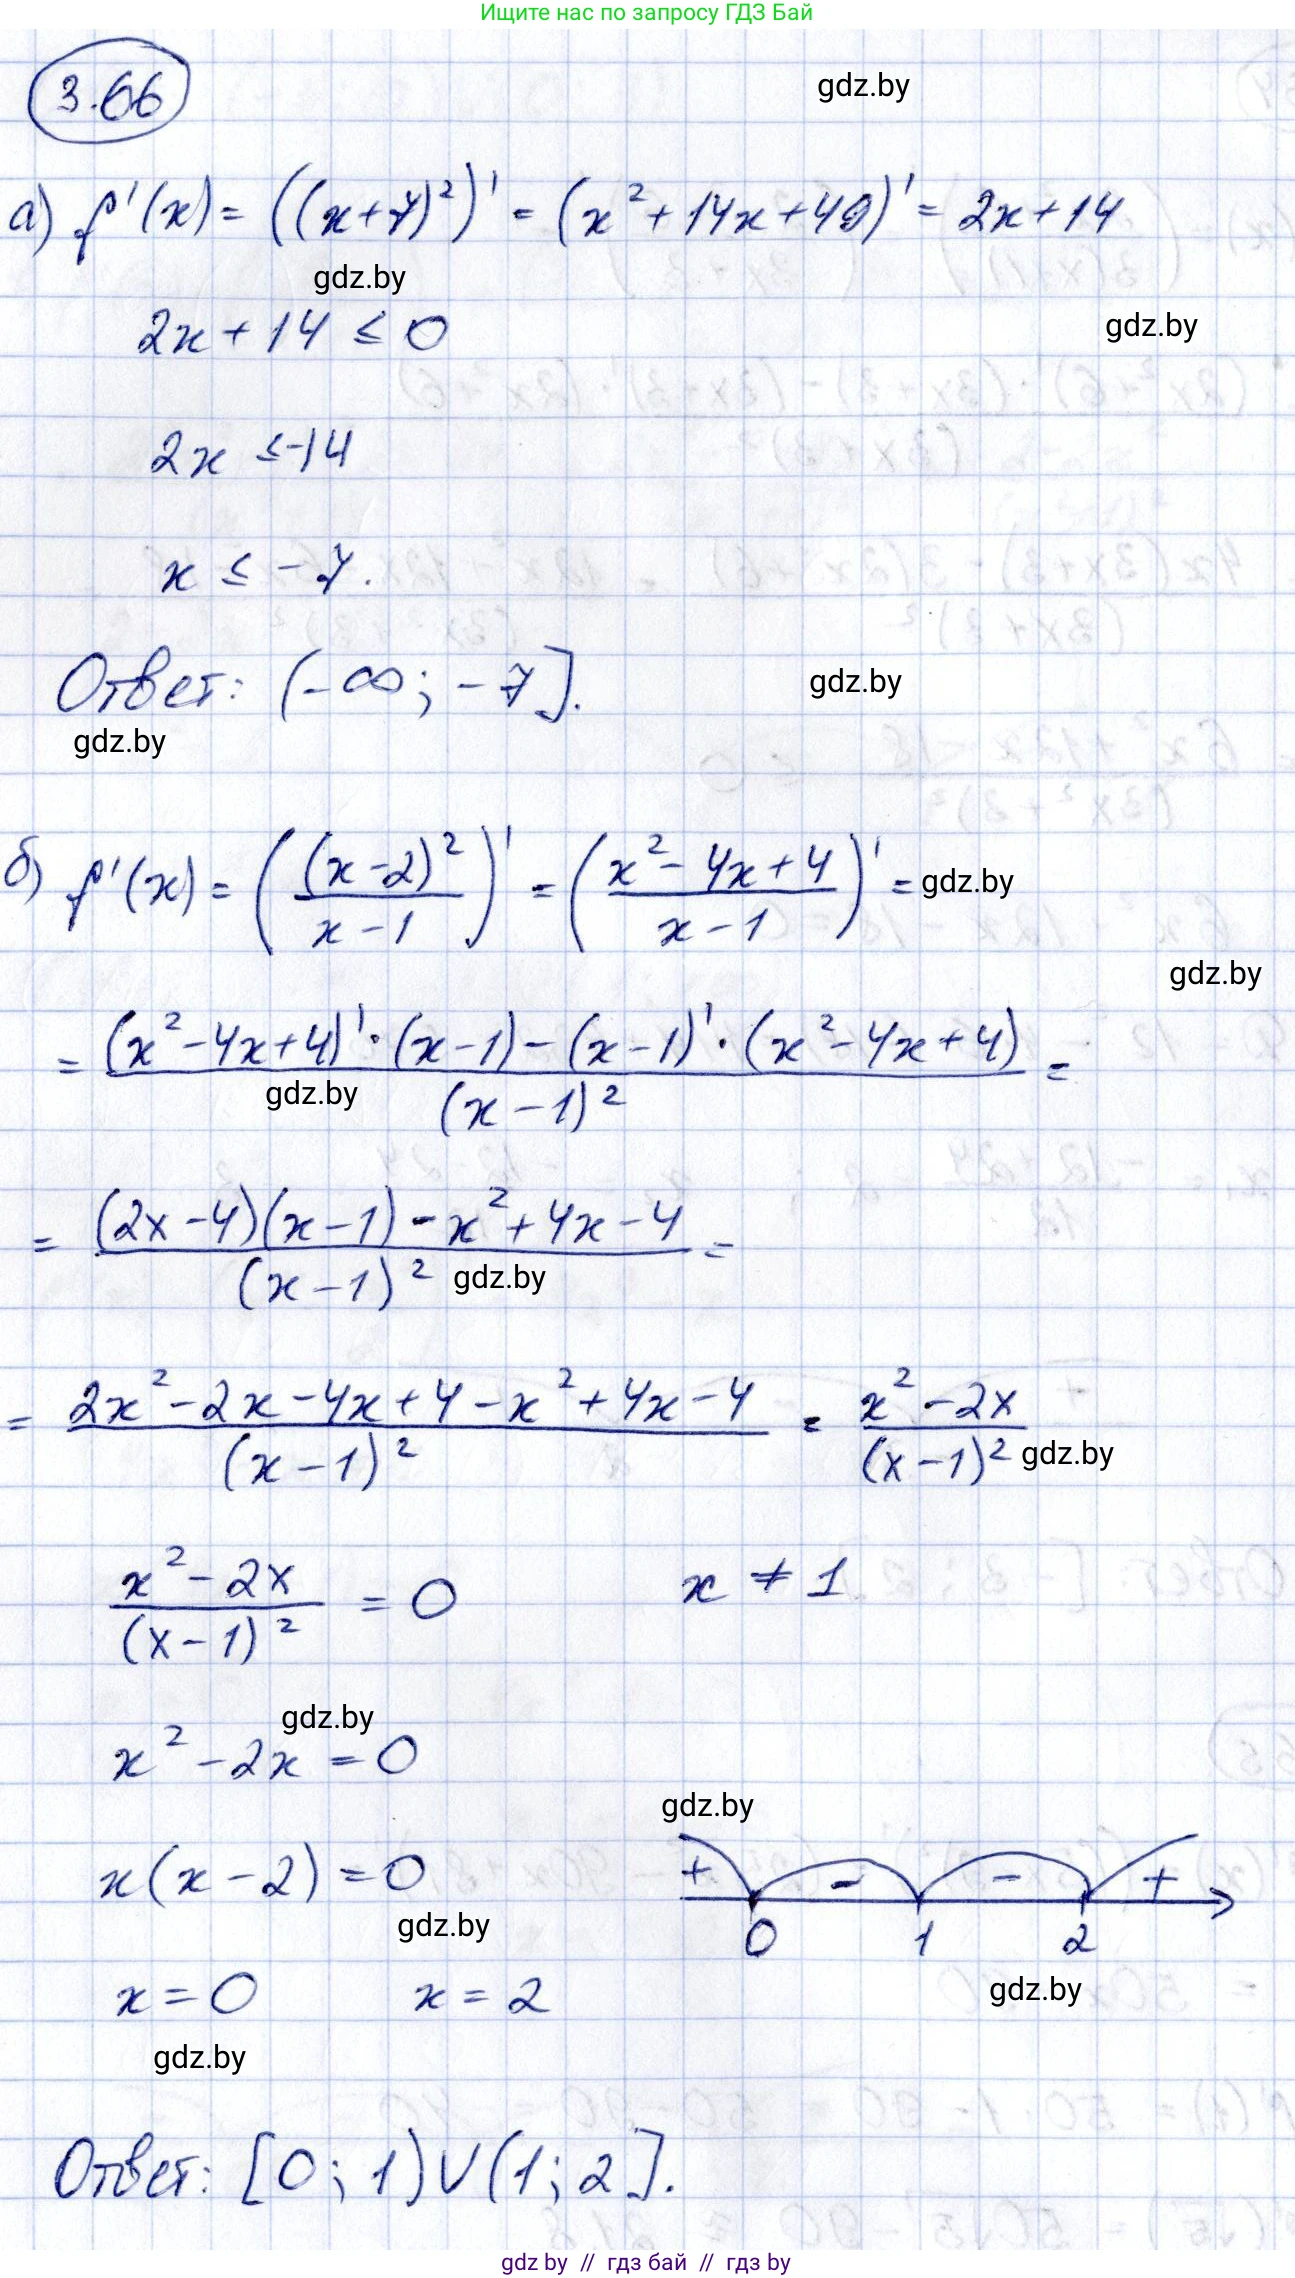 Ищите нас по запросу ГДЗ Бай
3.66
gdz.by
а) f'(x) = ((x+7)²)' = (x²+14x+49)' = 2x+14
gdz.by
2x+14 ≤ 0
gdz.by
2x ≤ -14
x ≤ -7.
Ответ: (-∞; -7].
gdz.by
gdz.by
б) f'(x) = ((x-2)²/(x-1))' = ((x²-4x+4)/(x-1))' =
gdz.by
gdz.by
= ((x²-4x+4)'·(x-1)-(x-1)'·(x²-4x+4))/(x-1)² =
gdz.by
= ((2x-4)(x-1)-x²+4x-4)/(x-1)² =
gdz.by
= (2x²-2x-4x+4-x²+4x-4)/(x-1)² = (x²-2x)/(x-1)²
gdz.by
(x²-2x)/(x-1)² = 0 x ≠ 1
gdz.by
x²-2x=0
gdz.by
x(x-2)=0
+ - - +
0 1 2
gdz.by
x=0 x=2
gdz.by
gdz.by
Ответ: [0; 1)∪(1; 2].
gdz by // гдз бай // гдз by